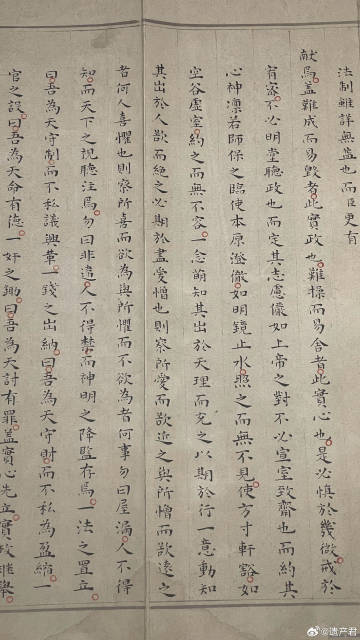 法制雖詳無益也而臣更有
献焉蓋難成而易毀者此實政也難操而易舍者此實心也是必慎於幾微戒於
宥密不必明堂聽政也而定其志慮儼如上帝之對不必宣室致齋也而約其
心神凛若師保之臨使本原澄徹如明鏡止水照之而無不見使方寸軒豁如
空谷虛室約之而無不容一念萌知其出於天理而充之以期於行一意動知
其出於人欲而絕之必期於盡愛憎也則察所愛而欲近之與所憎而欲遠之
者何人喜懼也則察所喜而欲為與所懼而不欲為者何事勿曰屋漏人不得
知而天下之視聽注焉勿曰非違人不得禁而神明之降監存焉一法之置立
曰吾為天守制而不私議興革一錢之出納曰吾為天守財而不私為盈縮一
官之設曰吾為天命有德一奸之鋤曰吾為天討有罪蓋實心先立實政繼舉
@遗产君